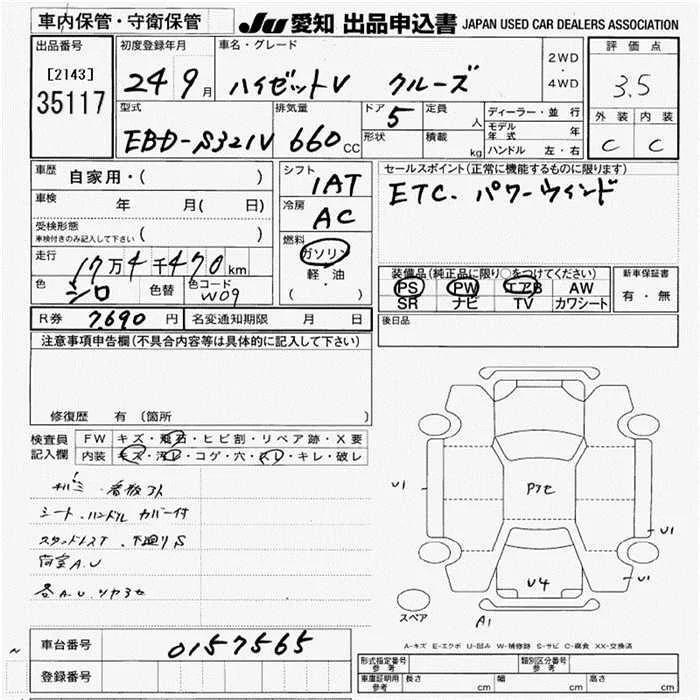 車内保管・守衛保管
JU 愛知 出品申込書 JAPAN USED CAR DEALERS ASSOCIATION
出品番号
[2143]
35117
初度登録年月
24 9月
車名・グレード
ハイゼットV クルーズ
2WD
・
4WD
評価点
3.5
外装 内装
C C
型式
EBD-S321V
排気量
660 CC
ドア
5
形状
定員
人
積載
kg
ディーラー・並行
モデル年式 年
ハンドル 左・右
車歴 自家用・( )
車検 年 月( 日)
受検形態
車検付きのみ記入して下さい ( )
走行 17万4千470km
色 シロ 色替 色コード W09
シフト
1AT
冷房
AC
燃料
ガソリン
軽・油
( )
セールスポイント(正常に機能するものに限ります)
ETC. パワーウィンド
装備品(純正品に限り○をつけてください)
PS PW エアB AW
SR ナビ TV カワシート
新車保証書
有・無
R券 7,690 円 名変通知期限 月 日
後日品
注意事項申告欄(不具合内容等は具体的に記入して下さい)
修復歴 有(箇所
検査員
記入欄
FW キズ・飛石・ヒビ割・リペア跡・X要
内装 キズ・汚レ・コゲ・穴・スレ・キレ・破レ
キバミ・看板アト
シート・ハンドル カバー付
下廻りS
荷室A.U
各A.U
U1
Pアセ
U1
U1
U4
A1
スペア
A-キズ E-エクボ U-凹み W-補修跡 S-サビ C-腐食 XX-交換済
車台番号 0157565
登録番号
形式指定番号
参考
類別区分番号
参考
車庫証明用
参考
長さ cm 幅 cm 高さ cm